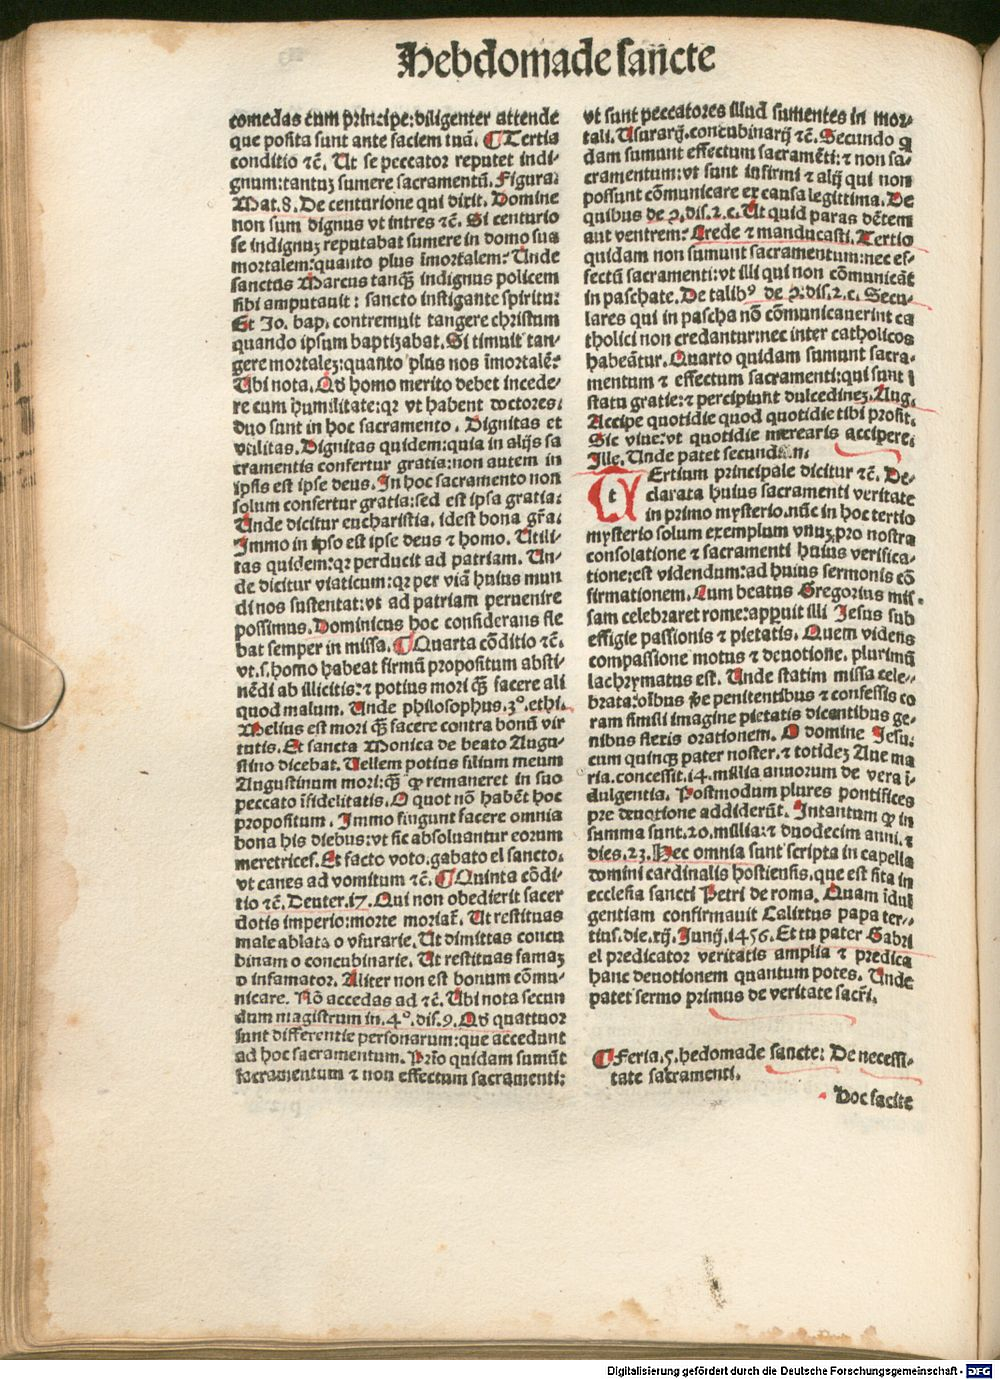 Hebdomade sancte
comedas cum principe: diligenter attende
que posita sunt ante faciem tuã. ¶ Tertia
conditio ⁊c̃. Ut se peccator reputet indi-
gnum: tantuʒ sumere sacramentũ. Figura:
Mat. 8. De centurione qui dixit. Domine
non sum dignus vt intres ⁊c̃. Si centurio
se indignuʒ reputabat sumere in domo sua
mortalem: quanto plus ĩmortalem: Unde
sanctus Marcus tanq̃ʒ indignus policem
sibi amputauit: sancto instigante spiritu:
Et Jo. bap. contremuit tangere christum
quando ipsum baptizabat. Si timuit tan-
gere mortaleʒ: quanto plus nos ĩmortalẽ:
Ubi nota. Qď homo merito debet incede-
re cum humilitate: qꝛ vt habent doctores:
duo sunt in hoc sacramento. Dignitas et
vtilitas. Dignitas quidem: quia in alijs sa
cramentis confertur gratia: non autem in
ipsis est ipse deus. In hoc sacramento non
solum confertur gratia: sed est ipsa gratia:
Unde dicitur eucharistia. idest bona gr̃a:
Immo in ipso est ipse deus ⁊ homo. Utili-
tas quidem: qꝛ perducit ad patriam. Un-
de dicitur viaticum: qꝛ per viã huius mun
di nos sustentat: vt ad patriam peruenire
possimus. Dominicus hoc considerans fle
bat semper in missa. ¶ Quarta cõditio ⁊c̃.
vt. s. homo habeat firmũ propositum absti-
nẽdi ab illicitis: ⁊ potius mori q̃ʒ facere ali
quod malum. Unde philosophus. 3°. ethi.
Melius est mori q̃ʒ facere contra bonũ vir
tutis. Et sancta Monica de beato Augu-
stino dicebat. Uellem potius filium meum
Augustinum mori: q̃ʒ ꝙ remaneret in suo
peccato ĩfidelitatis. O quot nõ habẽt hoc
propositum. Immo fingunt facere omnia
bona his diebus: vt sic absoluantur eorum
meretrices. Et facto voto. gabato el sancto.
vt canes ad vomitum ⁊c̃. ¶ Quinta cõdi-
tio ⁊c̃. Deuter. 17. Qui non obedierit sacer
dotis imperio: morte moriat̃. Ut restituas
male ablata o vsurarie. Ut dimittas concu
binam o concubinarie. Ut restituas famaʒ
o infamator. Aliter non est bonum cõmu-
nicare. Nõ accedas ad ⁊c̃. Ubi nota secun
dum magistrum in. 4°. dis. 9. Qď quattuor
sunt differentie personarum: que accedunt
ad hoc sacramentum. Prĩo quidam sumũt
sacramentum ⁊ non effectum sacramenti:
vt sunt peccatores illud sumentes in mor-
tali. Usurarij. concubinarij ⁊c̃. Secundo q̃
dam sumunt effectum sacramẽti: ⁊ non sa-
cramentum: vt sunt infirmi ⁊ alij qui non
possunt cõmunicare ex causa legittima. De
quibus de ꝯ. dis. 2. c. Ut quid paras dẽtem
aut ventrem: Crede ⁊ manducasti. Tertio
quidam non sumunt sacramentum: nec ef-
fectũ sacramenti: vt illi qui non cõmunicãt
in paschate. De talibꝰ de ꝯ. dis. 2. c. Secu-
lares qui in pascha nõ cõmunicauerint ca
tholici non credantur: nec inter catholicos
habeãtur. Quarto quidam sumunt sacra-
mentum ⁊ effectum sacramenti: qui sunt ĩ
statu gratie: ⁊ percipiunt dulcedineʒ. Aug.
Accipe quotidie quod quotidie tibi prosit.
Sic viue: vt quotidie merearis accipere:
Ille. Unde patet secundum.
TErtium principale dicitur ⁊c̃. De-
clarata huius sacramenti veritate
in primo mysterio. nũc in hoc tertio
mysterio solum exemplum vnuʒ pro nostra
consolatione ⁊ sacramenti huius verifica-
tione: est videndum: ad huius sermonis cõ
firmationem. Cum beatus Gregorius mis-
sam celebraret rome: appuit illi Jesus sub
effigie passionis ⁊ pietatis. Quem videns
compassione motus ⁊ deuotione. plurimũ
lachrymatus est. Unde statim missa cele-
brata: oĩbus v̾e penitentibus ⁊ confessis co
ram simili imagine pietatis dicentibus ge-
nibus flexis orationem. O domine Jesu:
cum quinqʒ pater noster. ⁊ totideʒ Aue ma
ria. concessit. 14. millia annorum de vera ĩ-
dulgentia. Postmodum plures pontifices
pre deuotione addiderũt. Intantum ꝙ in
summa sunt. 20. millia: ⁊ duodecim anni. ⁊
dies. 23. Hec omnia sunt scripta in capella
domini cardinalis hostiensis. que est sita in
ecclesia sancti Petri de roma. Quam ĩdul
gentiam confirmauit Calixtus papa ter-
tius. die. xij. Junij. 1456. Et tu pater Gabri
el predicator veritatis amplia ⁊ predica
hanc deuotionem quantum potes. Unde
patet sermo primus de veritate sacr̃i.
¶ Feria. 5. hedomade sancte: De necessi-
tate sacramenti.
Hoc facite
Digitalisierung gefördert durch die Deutsche Forschungsgemeinschaft - DFG